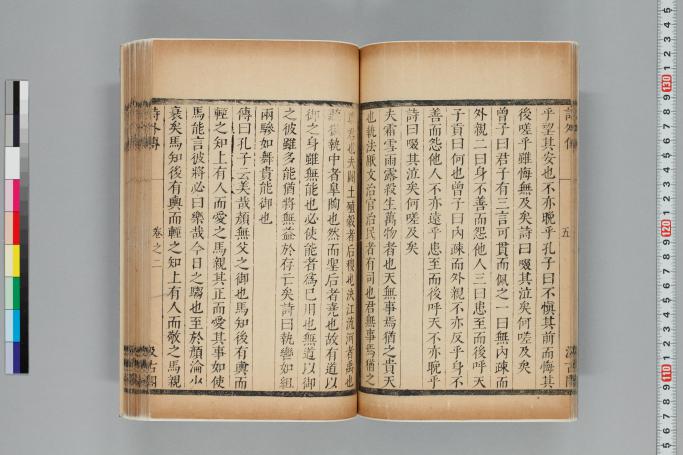 詩外傳
五
汲古閣
乎望其安也不亦晚乎孔子曰不愼其前而悔其
後嗟乎雖悔無及矣詩曰啜其泣矣何嗟及矣
曾子曰君子有三言可貫而佩之一曰無內疎而
外親二曰身不善而怨他人三曰患至而後呼天
子貢曰何也曾子曰內疎而外親不亦反乎身不
善而怨他人不亦遠乎患至而後呼天不亦晚乎
詩曰啜其泣矣何嗟及矣
夫霜雪雨露殺生萬物者也天無事焉猶之貴天
也執法厭文治官治民者有司也君無事焉猶之
尊君也夫闢土殖穀者后稷也決江流河者禹也
聽獄執中者皐陶也然而聖后者堯也故有道以
御之身雖無能也必使能者爲己用也無道以御
之彼雖多能猶將無益於存亡矣詩曰執轡如組
兩驂如舞貴能御也
傳曰孔子云美哉顏無父之御也馬知後有輿而
輕之知上有人而愛之馬親其正而愛其事如使
馬能言彼將必曰樂哉今日之騶也至於顏淪少
衰矣馬知後有輿而輕之知上有人而敬之馬親
詩外傳
卷之二
汲古閣
130
120
110